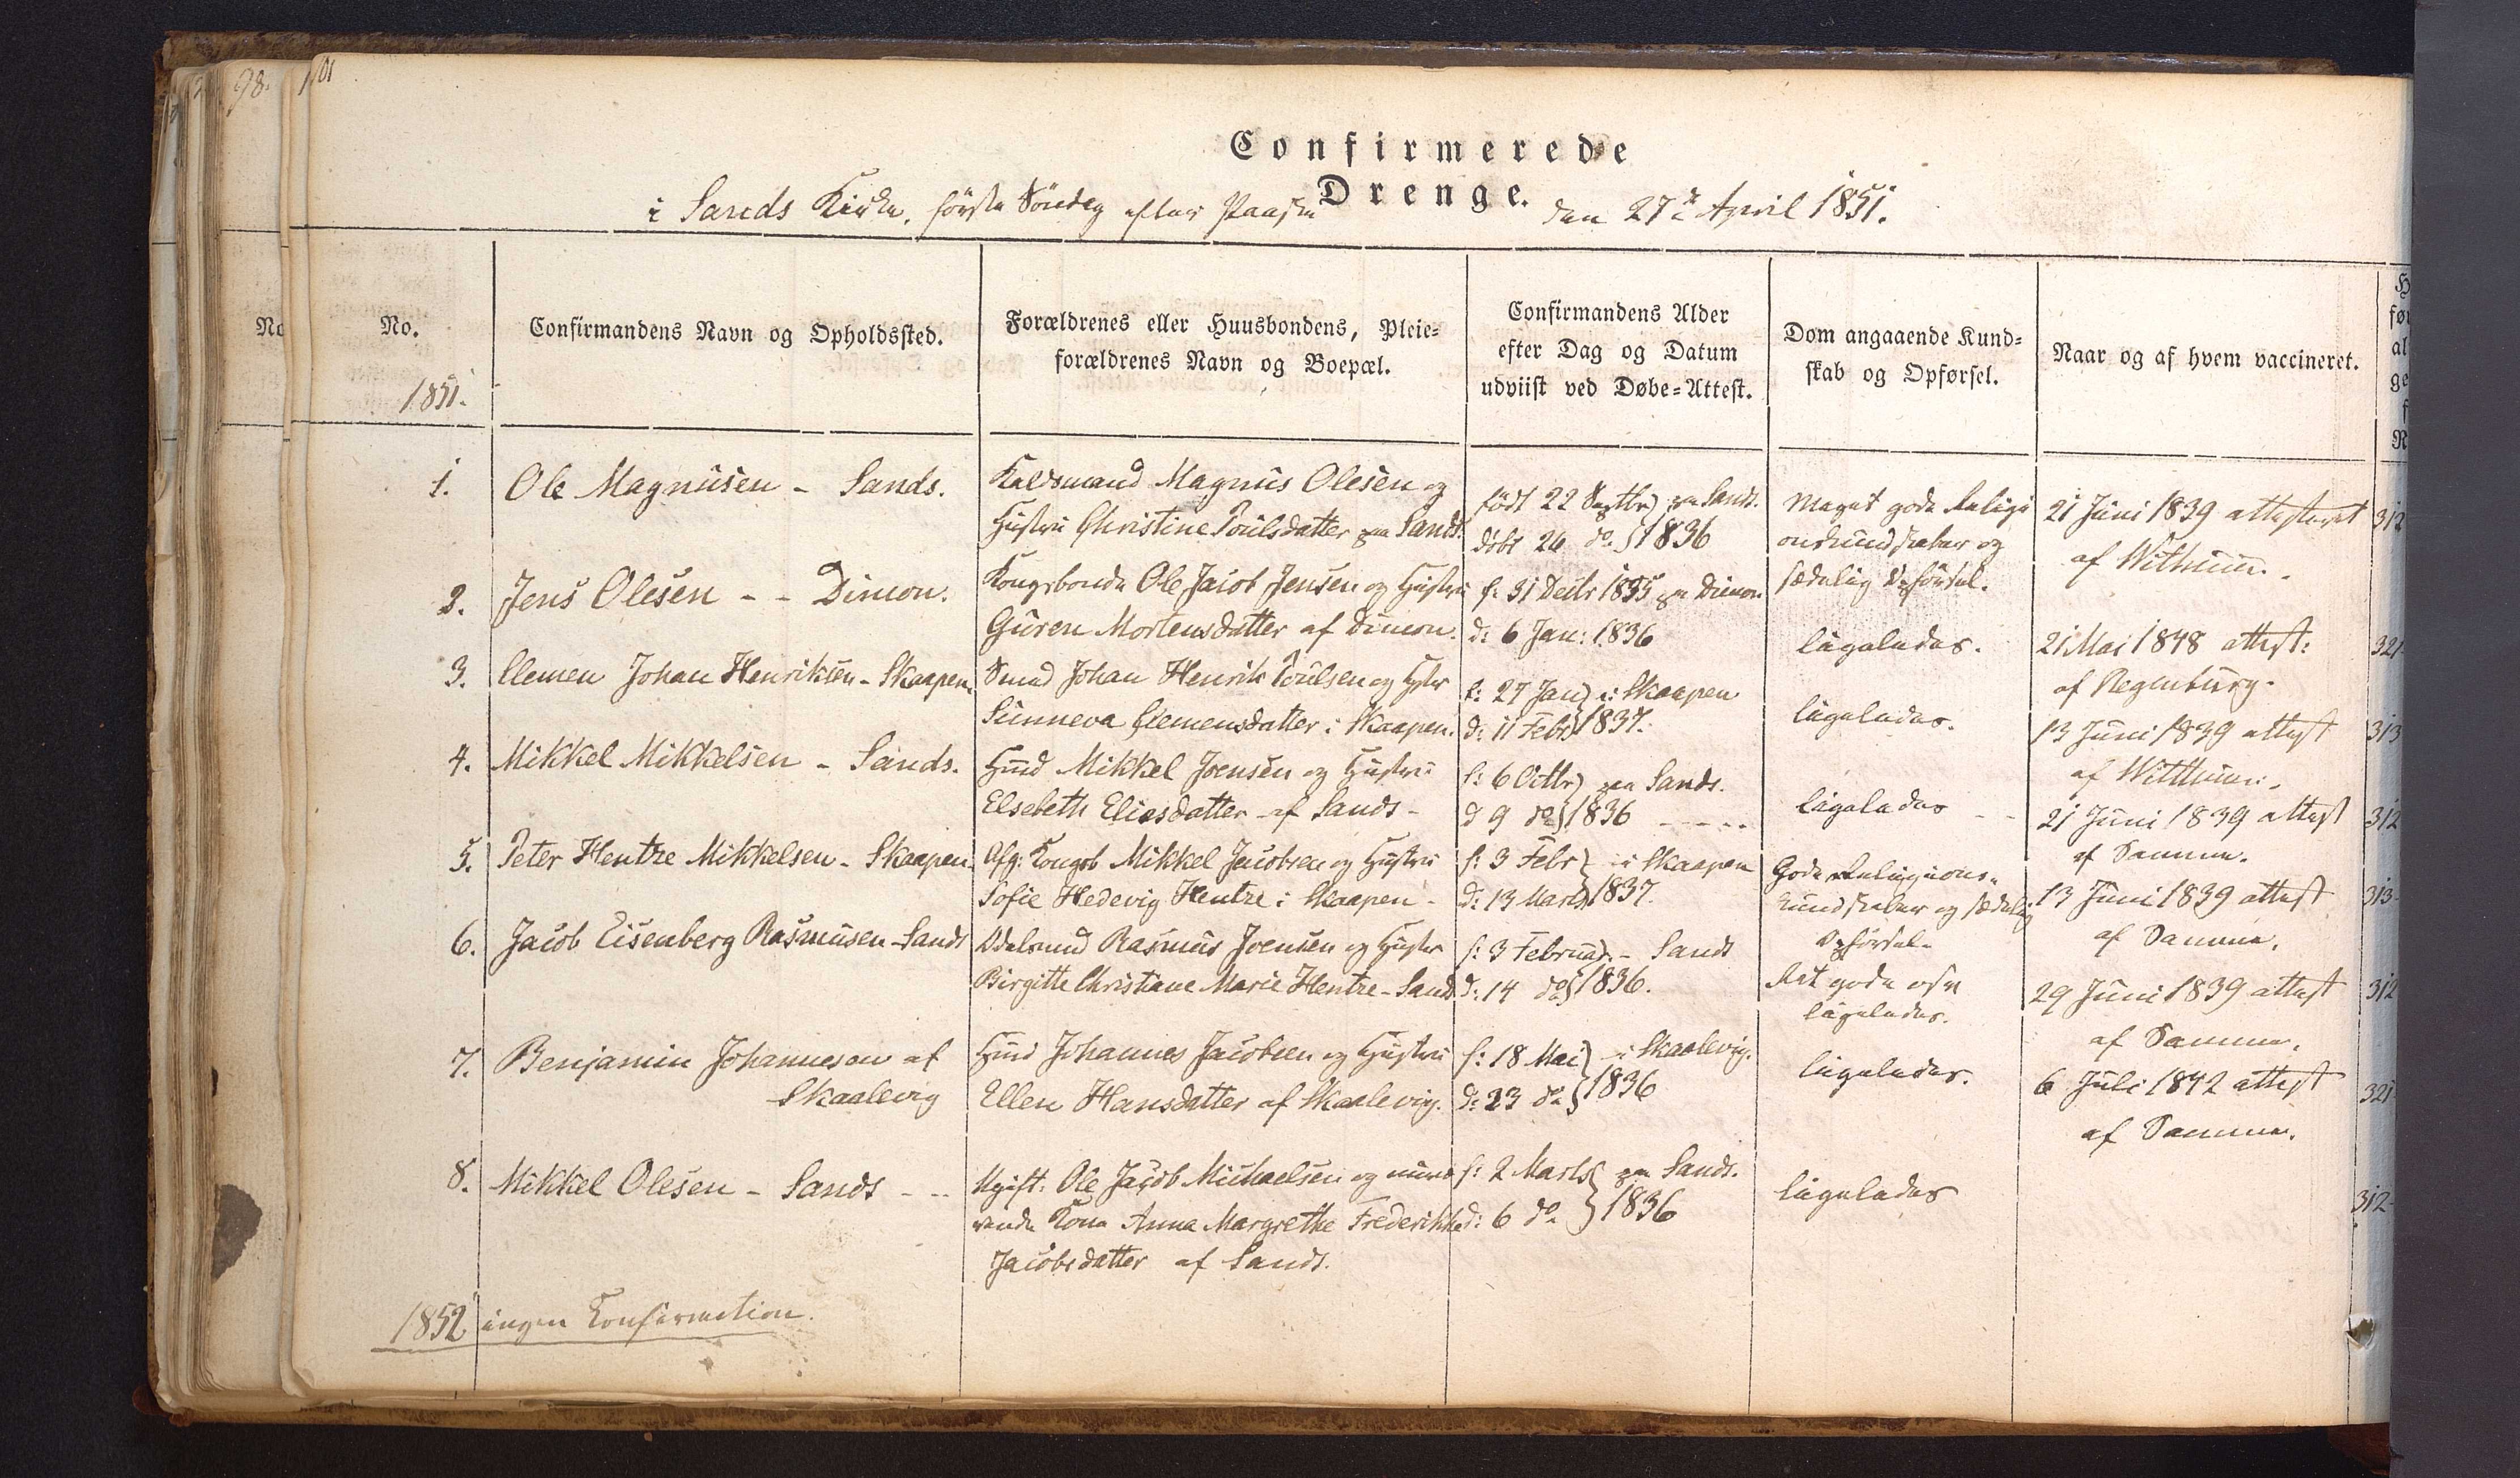 98.
101
Confirmerede
Drenge.
i Sands Kirke, første Söndag efter Paaske den 27de April 1851.
No.
No.
1851.
Confirmandens Navn og Opholdssted.
Forældrenes eller Huusbondens, Pleie-
forældrenes Navn og Boepæl.
Confirmandens Alder
efter Dag og Datum
udviist ved Døbe-Attest.
Dom angaaende Kund-
skab og Opførsel.
Naar og af hvem vaccineret.
1. Ole Magnusen - Sands.
Magnus Olesen og
Hustru Christine Poulsdatter paa Sands.
født 22 Septbr paa Sands.
döbt 24 do 1836
Meget gode Religi
onskundskaber og
sædelig Opförsel.
21 Juni 1839 attesteret
af Witthuun.
312
2. Jens Olesen - - Dimon.
Kongsbonde Ole Jacob Jensen og Hustru
Guren Mortensdatter af Dimon.
f: 31 Decbr 1835 paa Dimon
d: 6 Jan: 1836
ligeledes.
21 Mai 1848 attest:
af Regenburg.
321
3. Clemen Johan Henriksen - Skaapen.
Johan Henrik Poulsen og Hstr
Sunneva Clemensdatter i Skaapen.
f: 27 Jan i Skaapen
d: 11 Febr 1837.
ligeledes.
13 Juni 1839 attest
af Witthuun.
313
4. Mikkel Mikkelsen - Sands.
Hmd Mikkel Joensen og Hustru
Elsebeth Eliasdatter af Sands -
f: 6 Octbr paa Sands.
d 9 do 1836
ligeledes
21 Juni 1839 attest
af Samme.
312
5. Peter Hentze Mikkelsen - Skaapen.
Afg: Kongsb Mikkel Jacobsen og Hustru
Sofie Hedevig Hentze i Skaapen -
f: 3 Febr i Skaapen
d: 13 Marts 1837.
Gode Religions-
kundskaber og sædelig
Opförsel.
13 Juni 1839 attest
af Samme.
313
6. Jacob Eisenberg Rasmusen - Sands
Rasmus Joensen og Hustru
Birgitte Christiane Marie Hentze - Sands
f: 3 Februar - Sands
d: 14 do 1836.
Ret gode osv
ligeledes.
29 Juni 1839 attest
af Samme.
312
7. Benjamin Johannesen af
Skaalevig
Hmd Johannes Jacobsen og Hustru
Ellen Hansdatter af Skaalevig.
f: 18 Mai i Skaalevig.
d: 23 do 1836
ligeledes.
6 Juli 1842 attest
af Samme.
321
8. Mikkel Olesen - Sands - -
Ugift: Ole Jacob Michaelsen og nuvæ
rende Kone Anna Margrethe Frederikke
Jacobsdatter af Sands.
f: 2 Marts paa Sands.
d: 6 do 1836
ligeledes
312
1852 ingen Konfirmation.